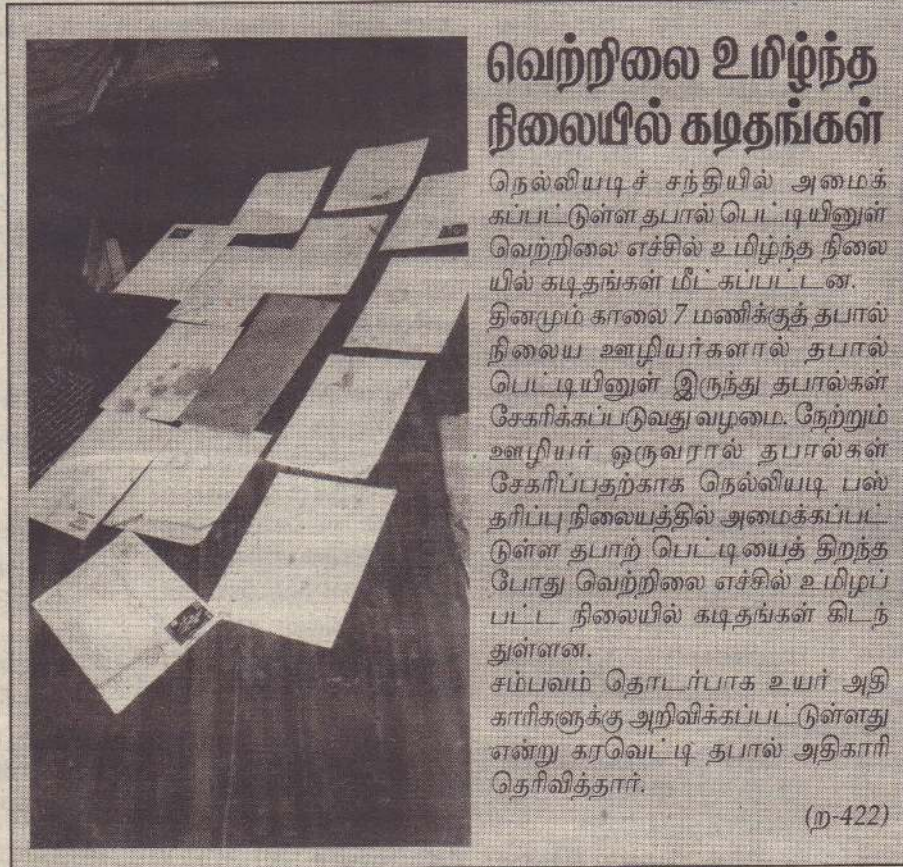 வெற்றிலை உமிழ்ந்த
நிலையில் கடிதங்கள்
நெல்லியடிச் சந்தியில் அமைக்
கப்பட்டுள்ள தபால் பெட்டியினுள்
வெற்றிலை எச்சில் உமிழ்ந்த நிலை
யில் கடிதங்கள் மீட்கப்பட்டன.
தினமும் காலை 7 மணிக்குத் தபால்
நிலைய ஊழியர்களால் தபால்
பெட்டியினுள் இருந்து தபால்கள்
சேகரிக்கப்படுவது வழமை. நேற்றும்
ஊழியர் ஒருவரால் தபால்கள்
சேகரிப்பதற்காக நெல்லியடி பஸ்
தரிப்பு நிலையத்தில் அமைக்கப்பட்
டுள்ள தபாற் பெட்டியைத் திறந்த
போது வெற்றிலை எச்சில் உமிழப்
பட்ட நிலையில் கடிதங்கள் கிடந்
துள்ளன.
சம்பவம் தொடர்பாக உயர் அதி
காரிகளுக்கு அறிவிக்கப்பட்டுள்ளது
என்று கரவெட்டி தபால் அதிகாரி
தெரிவித்தார்.
(ற-422)